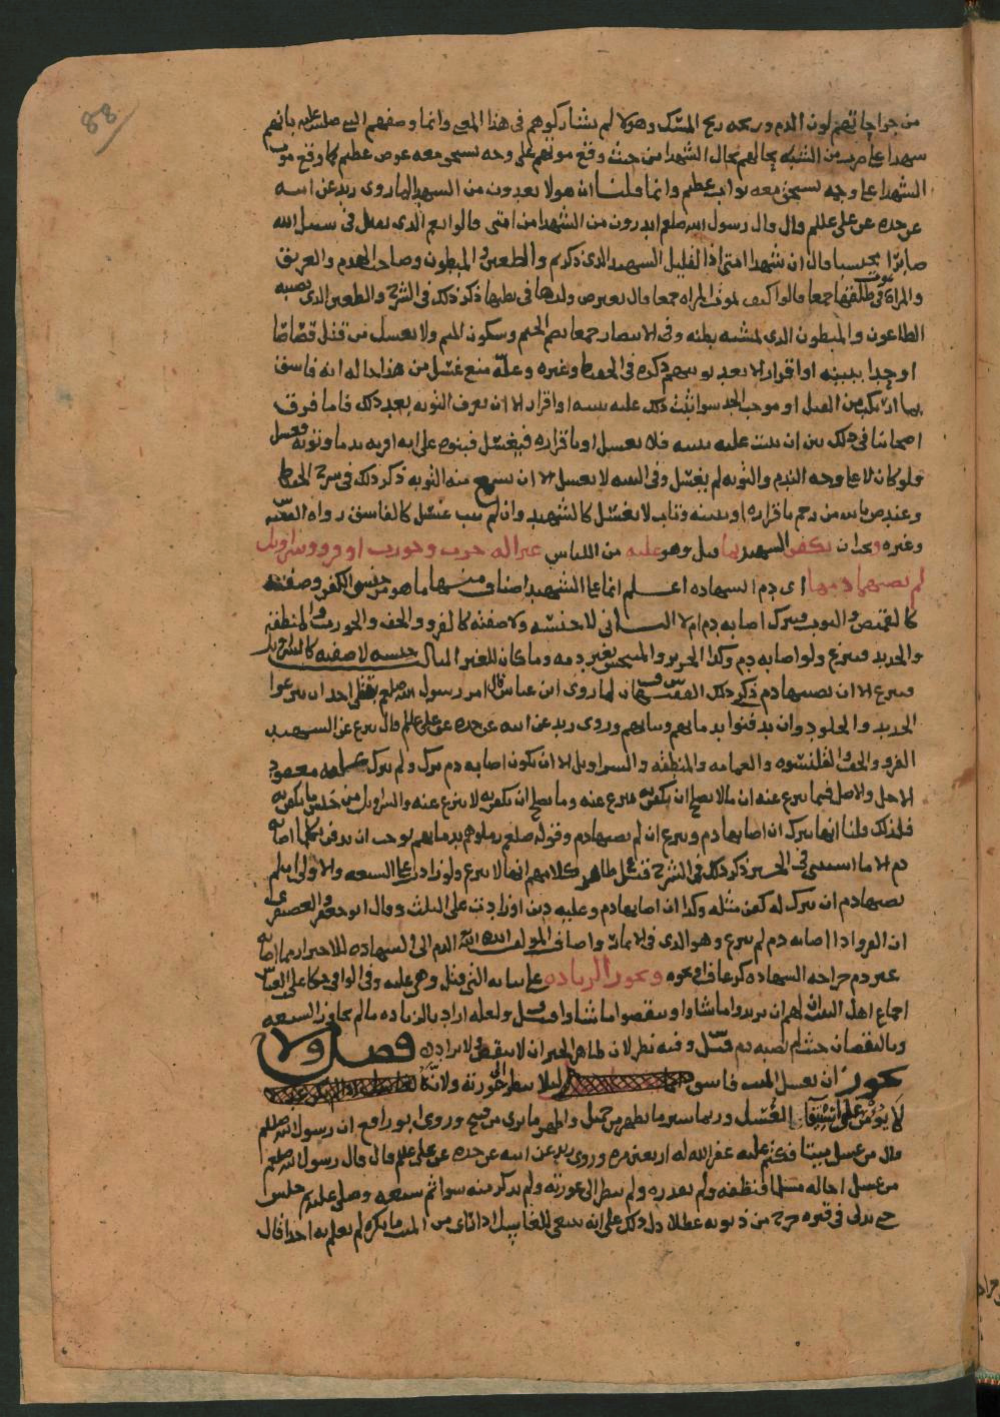 88
من جراحاتهم لون الدم وريحه ريح المسك وهولا لم يشاركوهم في هذا المعنى وانما وصفهم النبي صلى الله عليه بانهم
شهدا على ضرب من التشبه بحالهم بحال الشهدا من حيث وقع موتهم على وجه يستحق معه عوض عظيم كما وقع موت
الشهدا على وجه يستحق معه ثواب عظيم وانما قلنا ان هولا يعدون من الشهدا لما روى زيد عن ابيه
عن جده عن علي عليلم قال قال رسول الله صلعم ايدرون من الشهدا من امتي قالوا نعم الذي يقتل في سبيل الله
صابرا محتسبا قال ان شهدا امتي اذا لقليل الشهيد الذي ذكرتم والطعين والمبطون وصاحب الهدم والغريق
والمراة تموت في طلقها جمعا قالوا كيف تموت المراه جمعا قال يعترض ولدها في بطنها ذكر ذلك في الشرح والطعين الذي يصيبه
الطاعون والمبطون الذي لمشيه بطنه وفي الانتصار جمعا بضم الجيم وسكون الميم ولا يغسل من قتل قصاصا
او حدا ببينه او اقرار الا بعد توبتهم ذكره في الحفيظ وغيره وعلة منع غسل من هذا حاله انه فاسق
بما ارتكب من القتل او موجب الحد سوا ثبت ذلك عليه ببينه او اقرار الا ان يعرف التوبه بعد ذلك فاما فرق
اصحابنا في ذلك بين ان يثبت عليه ببينه فلا يغسل او باقراره فيغسل فبنوه على انه اقر به ندما وتوبه فغسل
ولو كان لا على وجه الندم والتوبه لم يغسل وفي البينه لا يغسل الا ان يسمع منه التوبه ذكر ذلك في شرح الحفيظ
وعند ص بالله من رجم باقراره او ببينه وتاب لا يغسل كالشهيد وان لم يتب غسل كالفاسق رواه الفقيه س
وغيره ويجب ان يكفن الشهيد بما قتل وهو عليه من اللباس غير اله حرب وجورب او فرو وسراويل
لم يصبها دمها اي دم الشهاده اعلم انما على الشهيد اصناف منها ما هو من جنس الكفن وصفته
كالقميص والثوب فيترك اصابه دم ام لا الثاني لا جنسه ولا صفته كالفرو والخف والجورب والمنطقه
والحديد فينزع ولو اصابه دم وكذا الحرير والمتنجس بغير دمه وما كان للغير الثالث جنسه لا صفته كالسراويل
فينزع الا ان يصيبها دم ذكر ذلك الفقيهان س ف لما روى ابن عباس قال امر رسول الله صلعم بقتلى احد ان ينزعوا
الحديد والجلود وان يدفنوا بدمايهم وثيابهم وروى زيد عن ابيه عن جده عن علي عليلم قال ينزع عن الشهيد
الفرو والخف والقلنسوه والعمامه والمنطقه والسراويل الا ان يكون اصابه دم ترك ولم يترك عليه معقود
الا حل والاصل فيما ينزع عنه ان ما لا يصح ان يكفن به ينزع عنه وما يصح ان يكفن به لا ينزع عنه والسراويل من جنس ما يكفن به
فلذلك قلنا انها تترك ان اصابها دم وينزع ان لم يصبها دم وقوله صلعم زملوهم بدمايهم يوجب ان يدفن بكل ما اصابه
دم الا ما استثني في الخبر ذكر ذلك في الشرح قيل ظاهر كلامهم انها لا تنزع ولو زاد على السبعه والاولى ان لم
يصبها دم ان يترك له كفن مثله وكذا ان اصابها دم وعليه دين او زادت على الثلث وقال ابو جعفر والعصيفري
ان الفرو اذا اصابه دم لم ينزع وهو الذي في الابانه واضاف المولف ايده الله الدم الى الشهاده للاحتراز مما اصابه
غير دم جراحه الشهاده كرعاف او نحوه وتجوز الزياده على ثيابه التي قتل وهي عليه وفي الوافي حكا علي بن العباس
اجماع اهل البيت ان لهم ان يزيدوا ما شاوا وينقصوا ما شاوا قيل ولعله اراد بالزياده ما لم يجاوز السبعه
وبالنقصان حيث لم يصبه دم قيل وفيه نظر لان ظاهر الخبر ان لا ينقص ولا يزاد فصل ولا
يكون ان يغسل الميت فاسق ليلا ينظر الى عورته ولانه
لا يؤمن على استيفا الغسل وربما ستر ما يظهر من جميل واظهر ما يرى من قبيح وروى ابو رافع ان رسول الله صلعم
قال من غسل ميتا فكتم عليه غفر الله له اربعين مره وروى زيد عن ابيه عن جده عن علي عليلم قال قال رسول الله صلعم
من غسل اخا له مسلما فنظفه ولم يقذره ولم ينظر الى عورته ولم يذكر منه سوا ثم شيعه وصلى عليه ثم جلس
حتى يدلى في قبره خرج من ذنوبه عطلا دل ذلك على انه ينبغي للغاسل اذا راى من الميت ما يكره لم يعلم به احدا قال